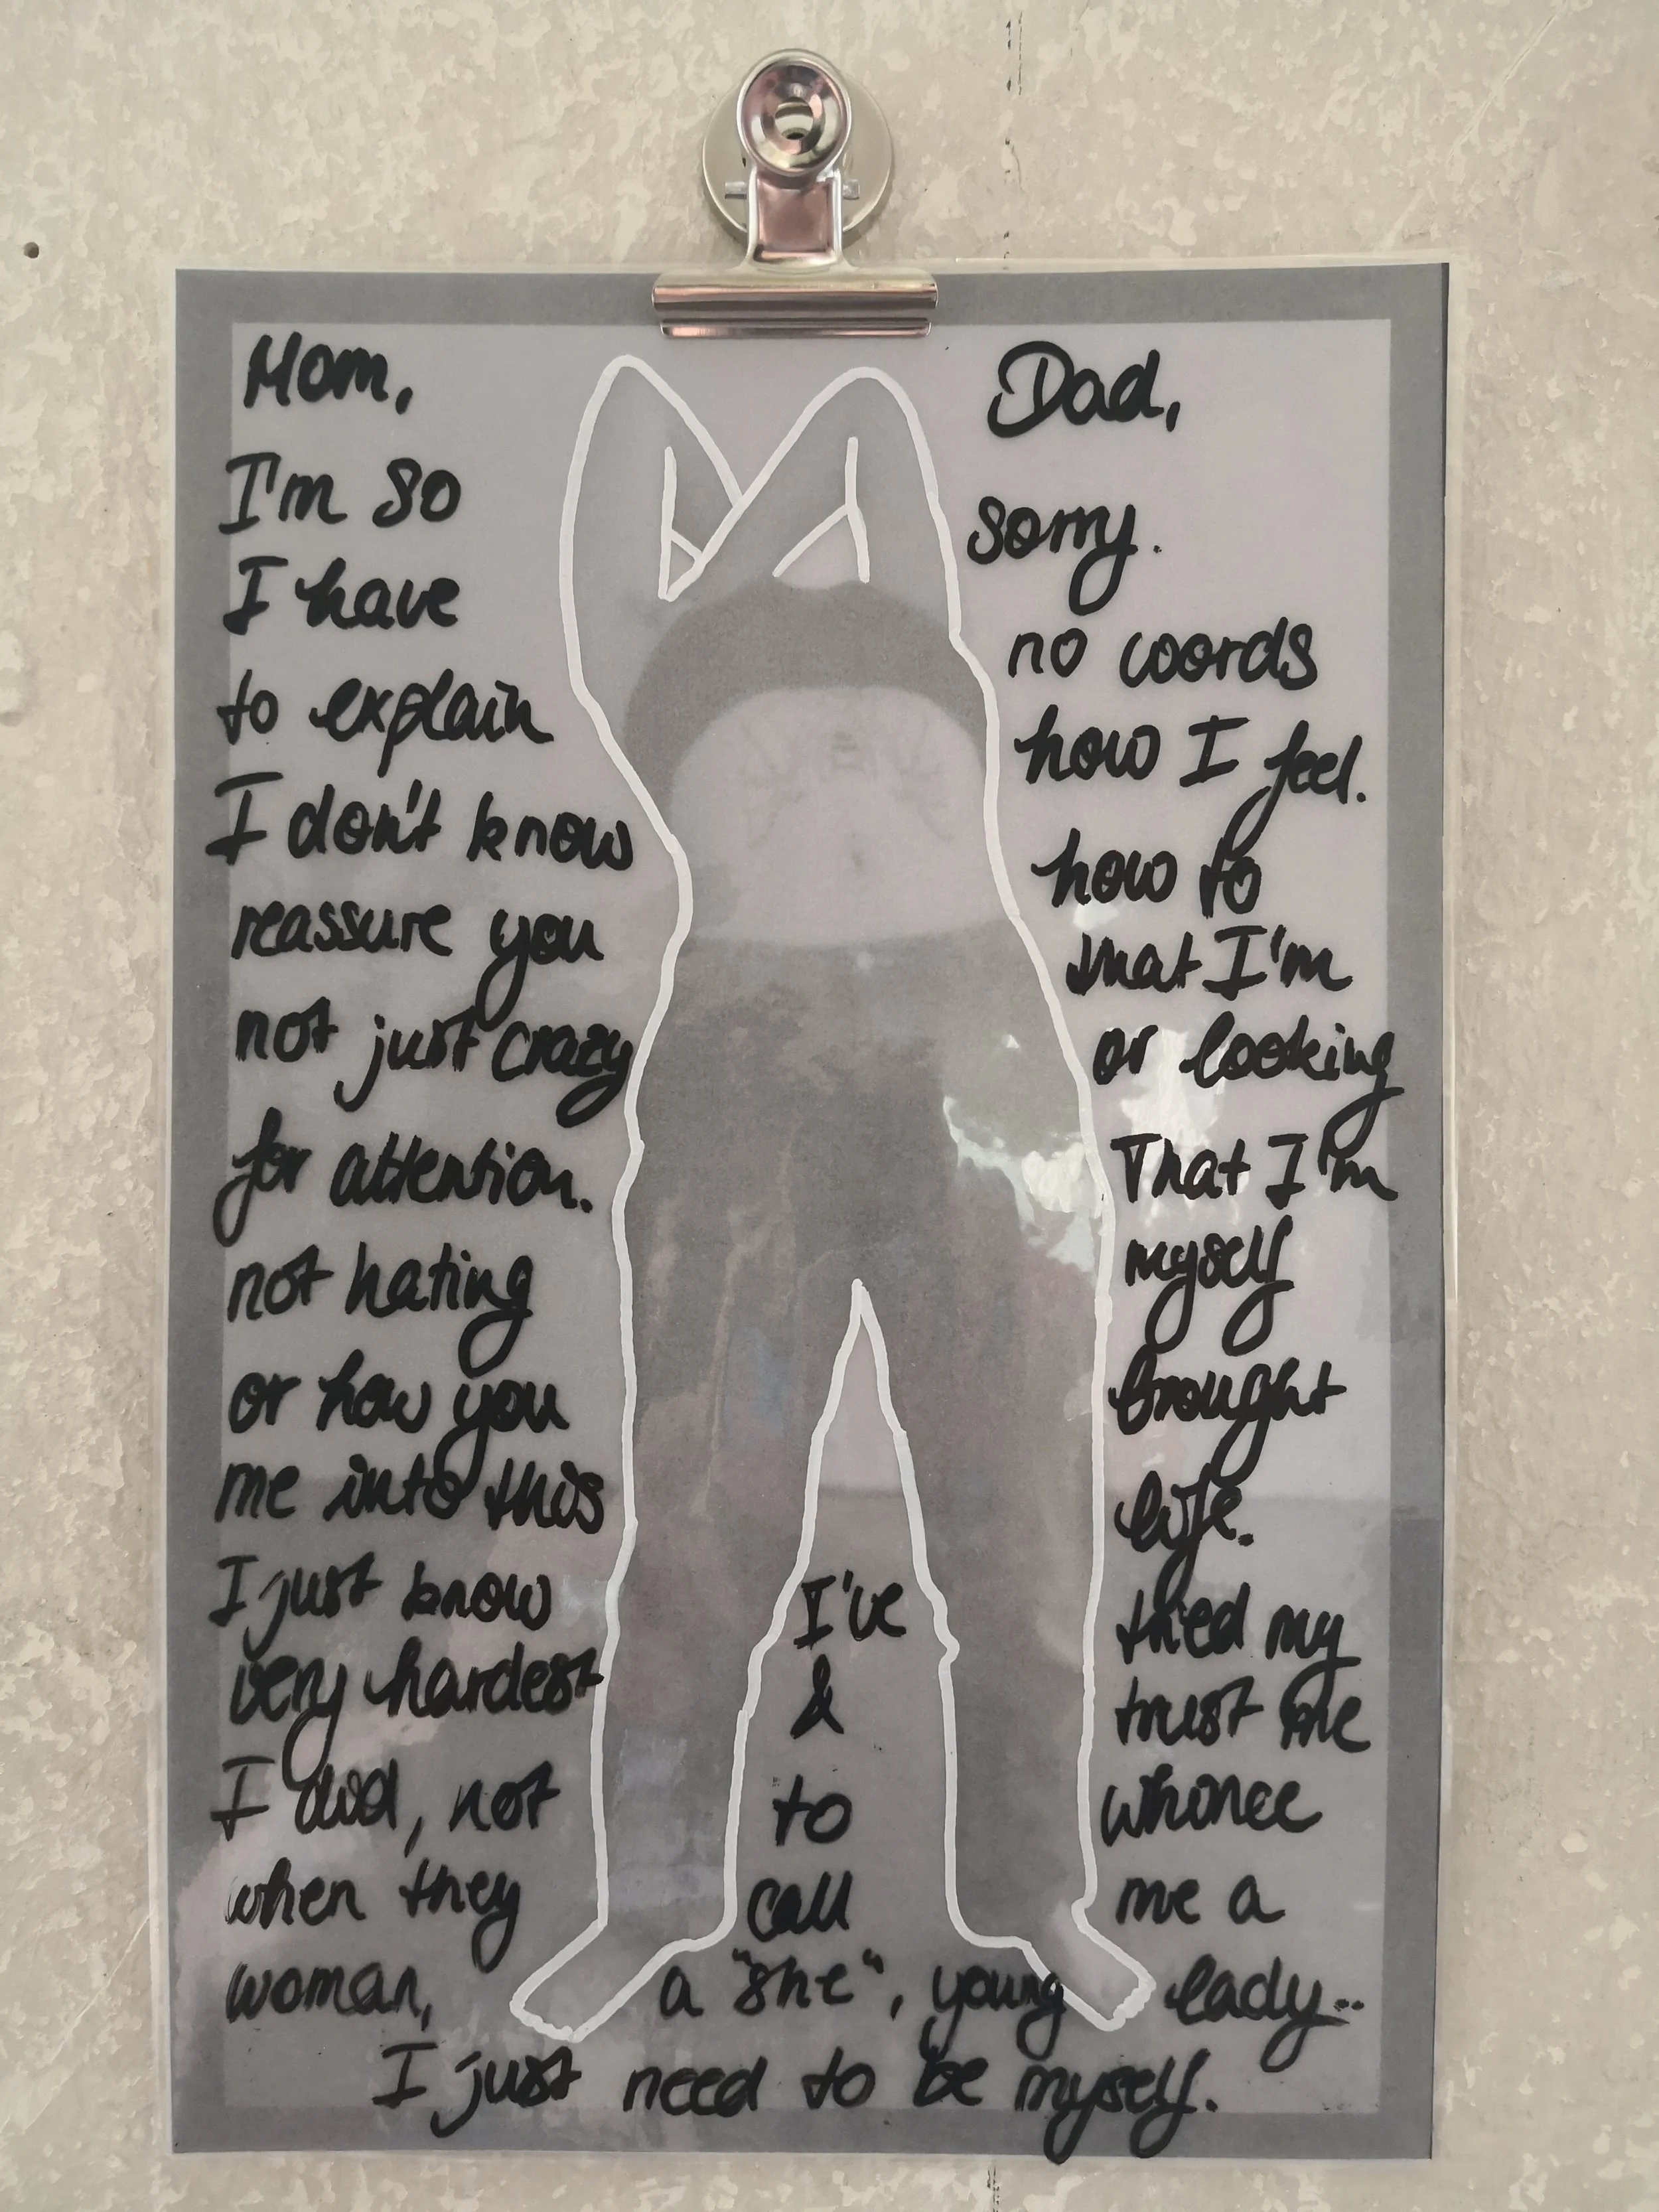 Mom, Dad,
I'm so sorry.
I have no words
to explain how I feel.
I don't know how to
reassure you that I'm
not just crazy or looking
for attention. That I'm
not hating myself
or how you brought
me into this life.
I just know I've tried my
very hardest & trust me
I did, not to whinee
when they call me a
woman, a "she", young lady..
I just need to be myself.